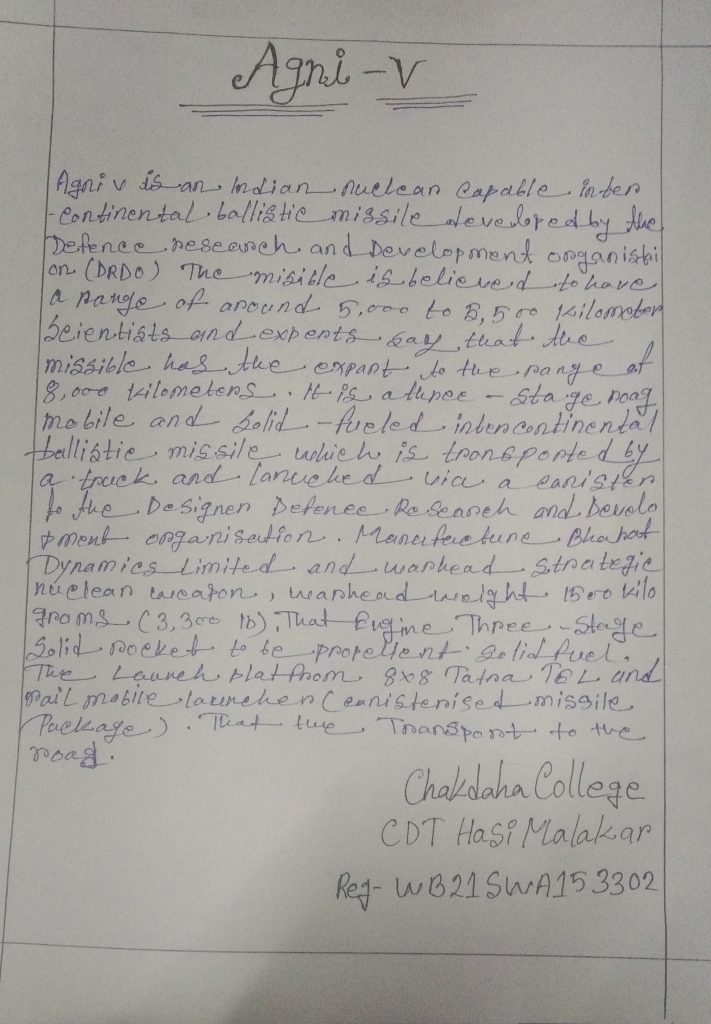 Agni - V
Agni v is an Indian nuclear capable inter
-continental ballistic missile developed by the
Defence research and Development organisti
on (DRDO) The misible is believed to have
a range of around 5,000 to 5,500 kilometer
Scientists and experts say that the
missible has the expant to the range of
8,000 kilometers. It is a three - stage roag
mobile and solid - fueled intercontinental
ballistic missile which is transported by
a truck and lanuched via a canister
to the Designer Defence Research and Develo
pment organisation. Manufacture Bharat
Dynamics Limited and warhead strategic
nuclear weapon, warhead weight 1500 kilo
grams (3,300 lb), That Engine Three - Stage
Solid rocket to be propellent solid fuel.
The Launch platfrom 8x8 Tatra TEL and
rail mobile launcher (canisterised missile
Package). That the Transport to the
roag.
Chakdaha College
CDT Hasi Malakar
Reg- WB21SWA153302